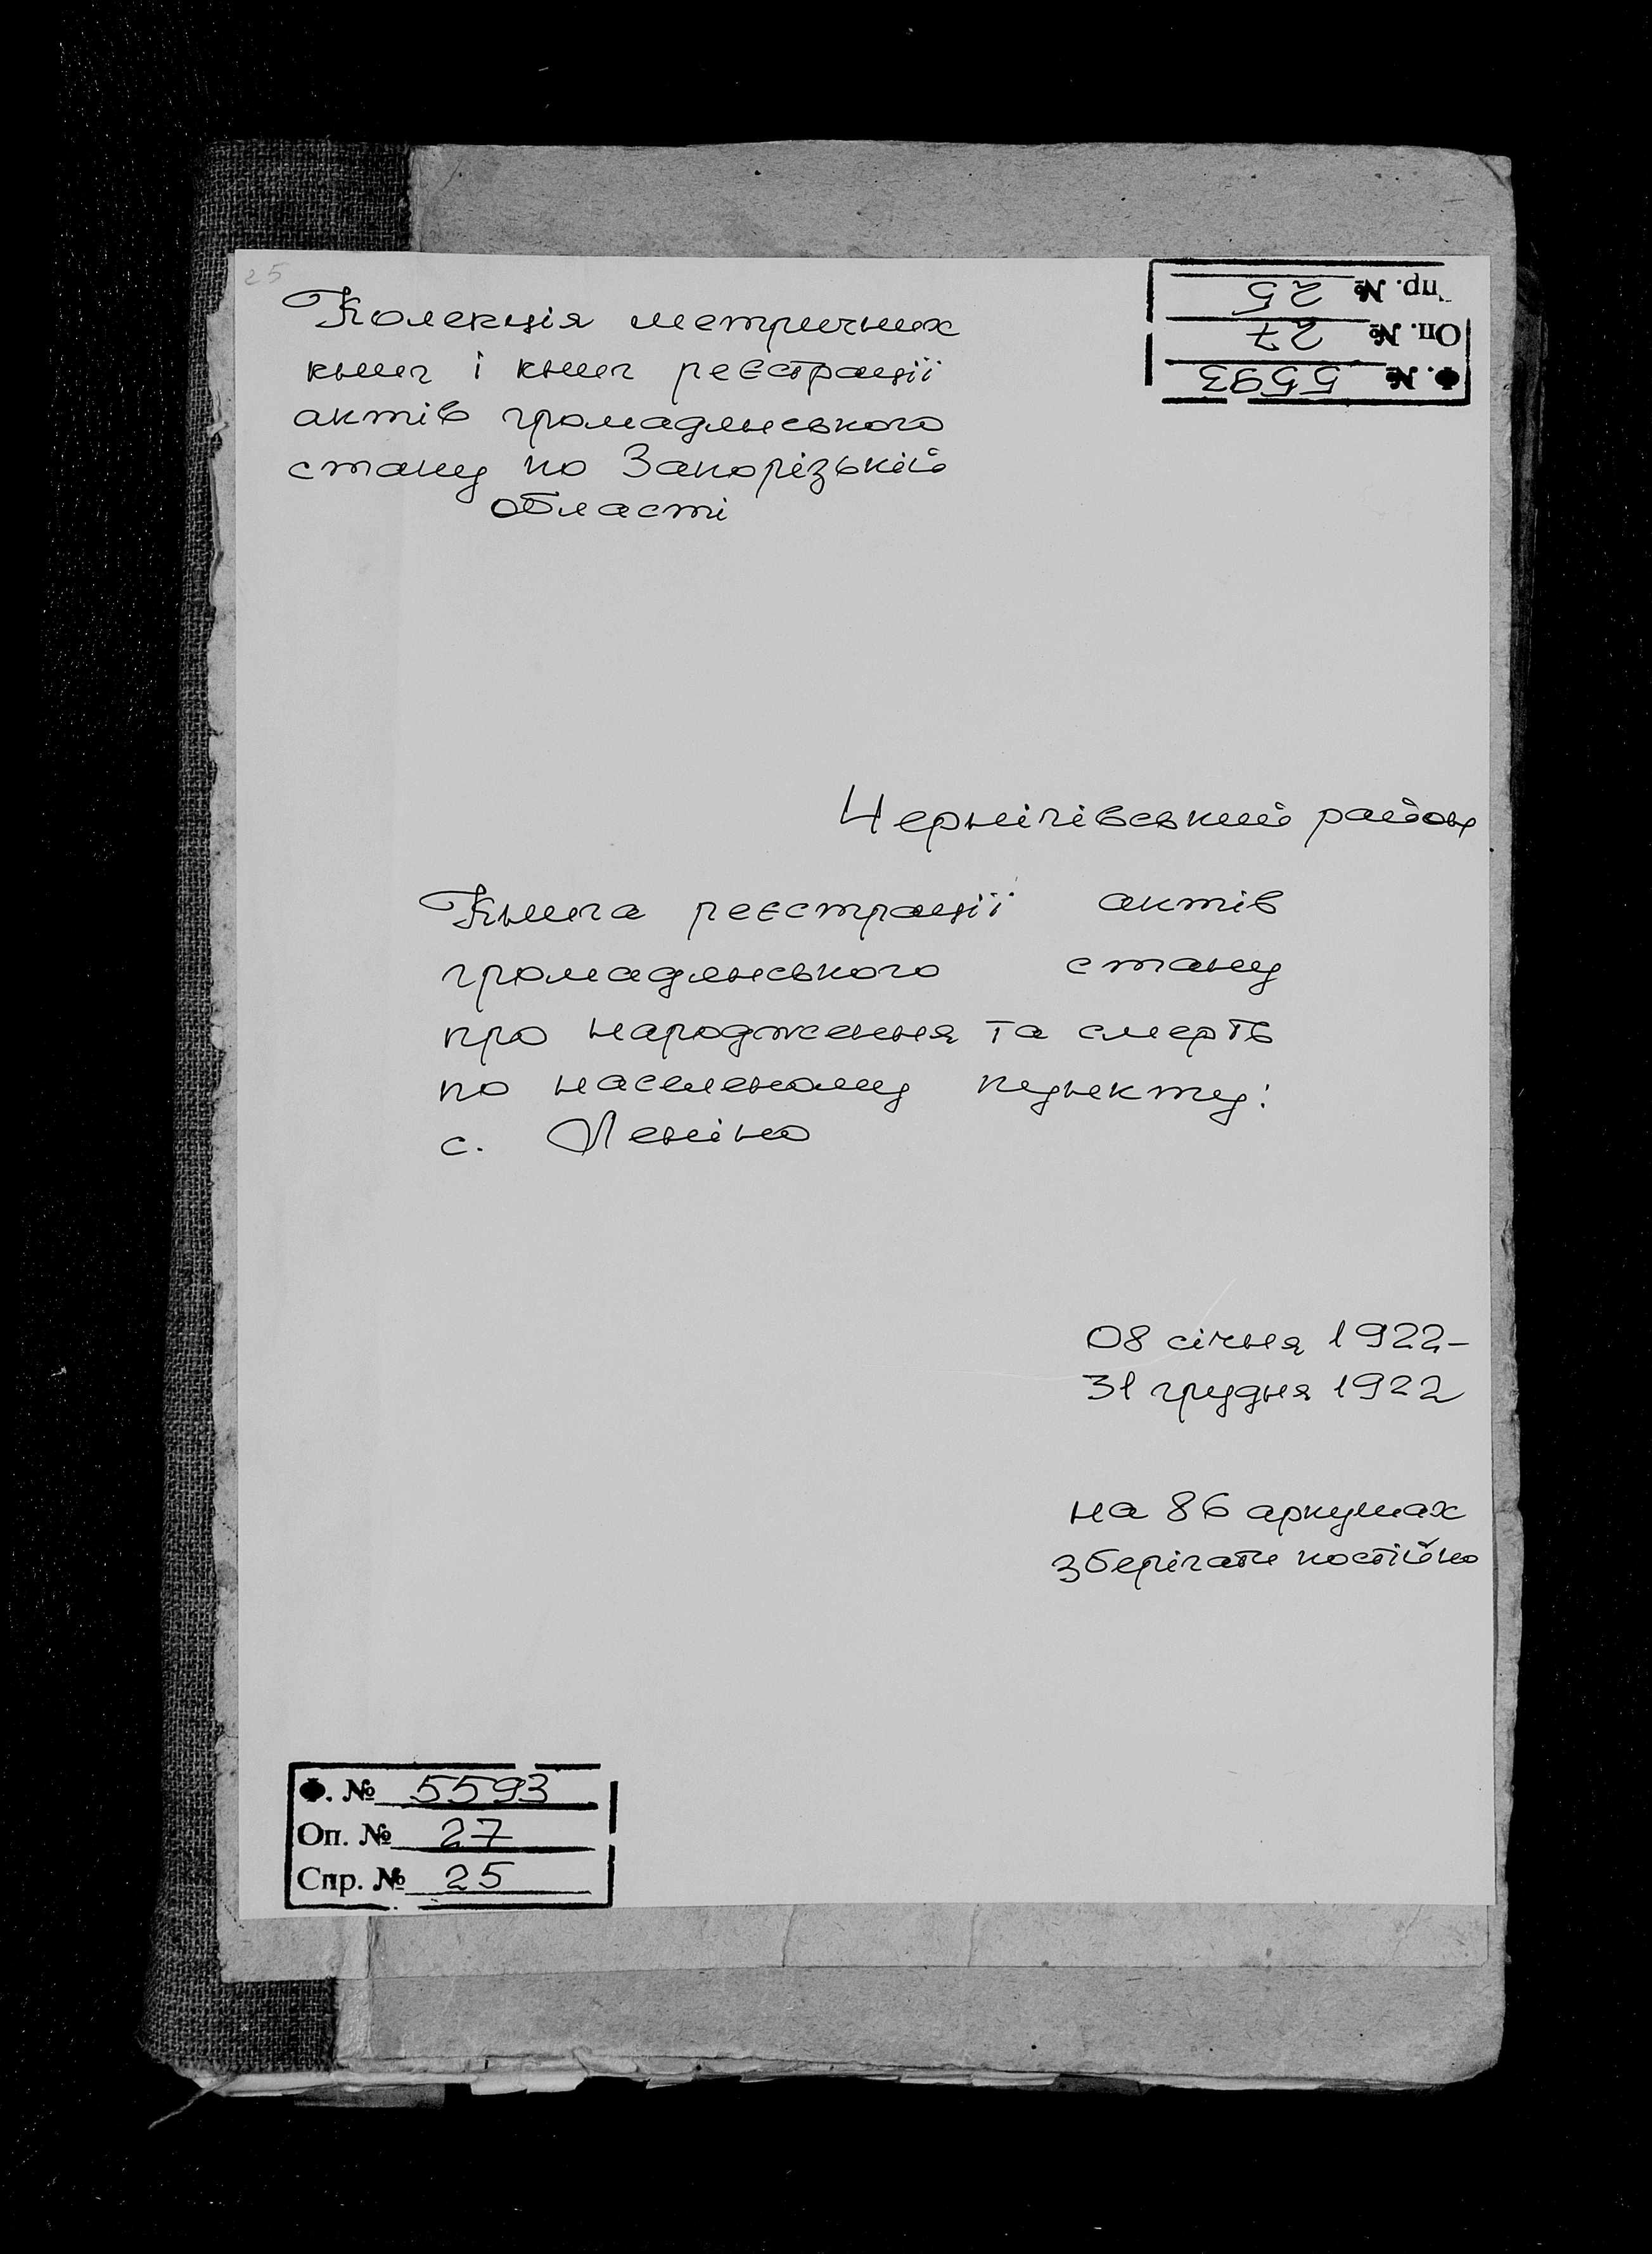 25
Колекція метричних
книг і книг реєстрації
актів громадянського
стану по Запорізькій
області
Спр. № 25
Оп. № 27
Ф. № 5593
Чернігівський район
Книга реєстрації актів
громадянського стану
про народження та смерть
по населеному пункту:
с. Леніно
08 січня 1922-
31 грудня 1922
на 86 аркушах
зберігати постійно
Ф. № 5593
Оп. № 27
Спр. № 25